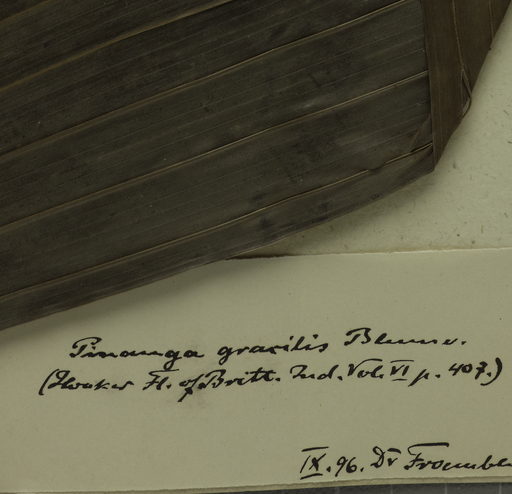 Pinanga gracilis Blume.
(Hooker Fl. of Britt. Ind. Vol. VI p. 407.)
IX. 96. Dr Froembl